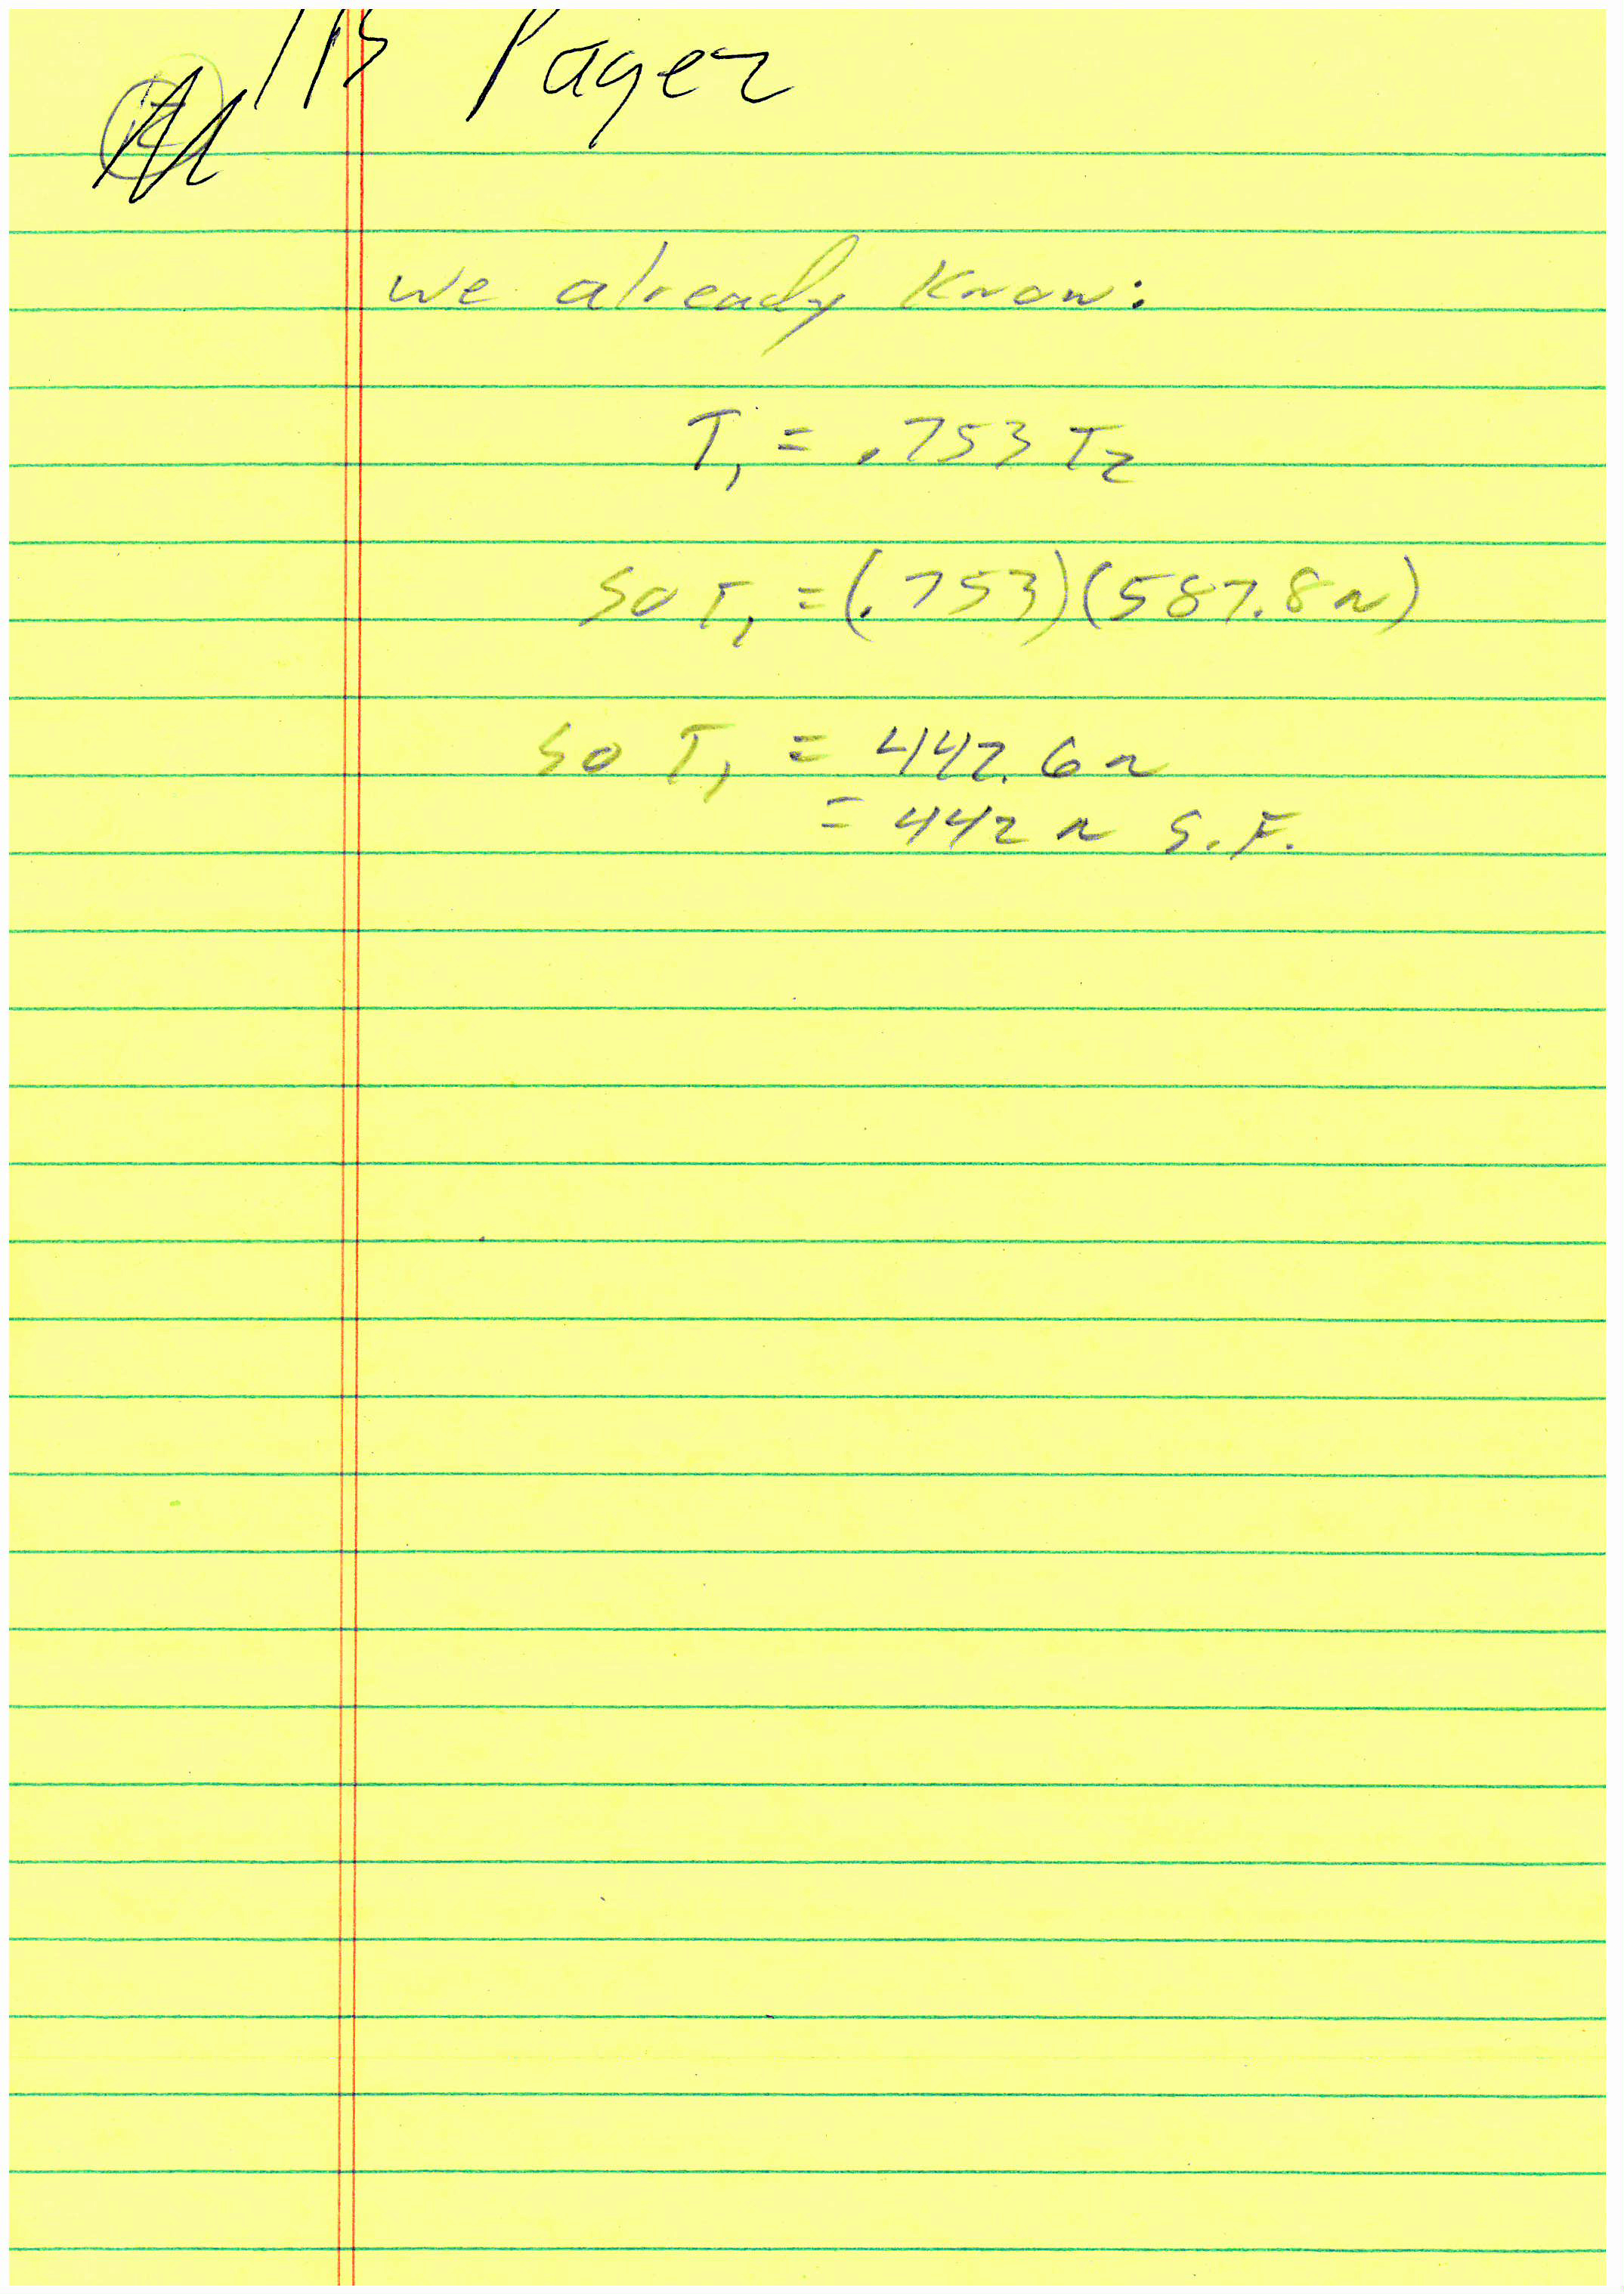 Page 2
we already know:
T₁ = .753 T₂
so T₁ = (.753)(587.8 n)
so T₁ = 442.6 n
= 442 n S.F.